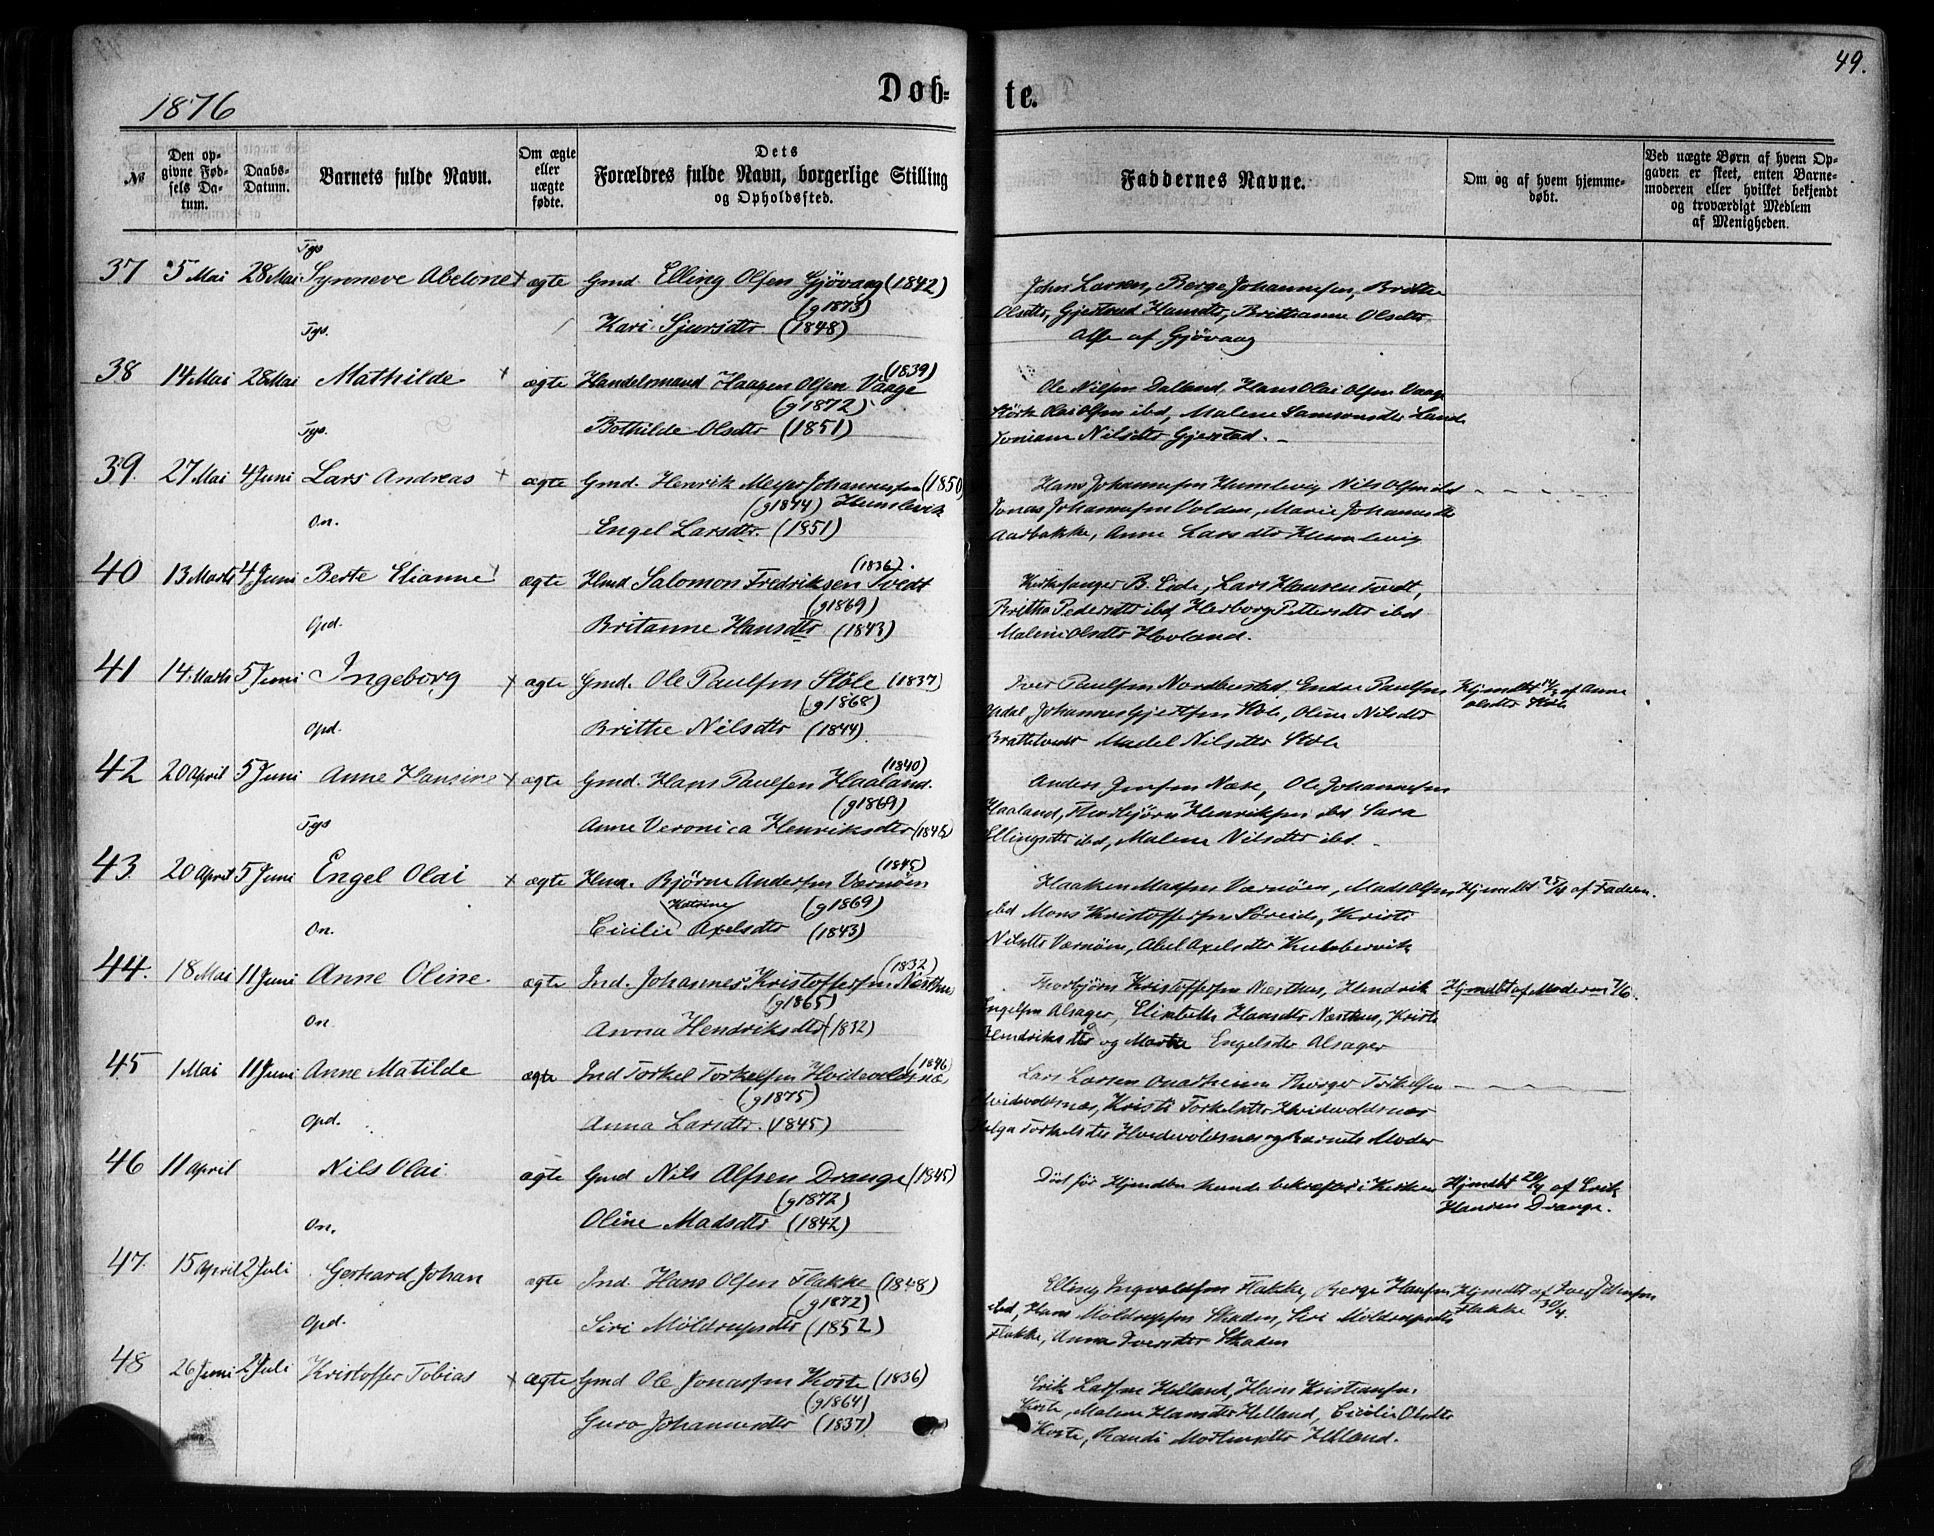 49.
1876
Døb-
te.
№
Den op-
givne Fød-
sels Da-
tum.
Daabs-
Datum.
Barnets fulde Navn.
Om ægte
eller
uægte
fødte.
Dets
Forældres fulde Navn, borgerlige Stilling
og Opholdssted.
Faddernes Navne.
Om og af hvem hjemme-
døbt.
Ved uægte Børn af hvem Op-
gaven er skeet, enten Barne-
moderen eller hvilket bekjendt
og troværdigt Medlem
af Menigheden.
Tys
37 5 Mai 28 Mai Synneve Abelone + ægte Gmd Elling Olsen Gjövaag (1842)
(g1873)
Tys. Kari Sjursdtr (1848)
John Larsen, Berge Johannessen, Brithe
Olsdtr, Gjertrud Hansdtr, Brithanne Olsdtr
Alle af Gjövaag
38 14 Mai 28 Mai Mathilde + ægte Handelsmand Haagen Olsen Vaage (1839)
(g1872)
Tys. Bothilde Olsdtr (1851)
Ole Nilsen Dalland, Hans Olai Olsen Vaage
Olai Olsen ibd, Malene Samsonsdtr Lund
Nilsdtr Gjerstad.
39. 27 Mai 4 Juni Lars Andreas + ægte Gmd. Henrik Meyer Johannessen (1850)
(g1874) Humlevik
On. Engel Larsdtr. (1851)
Hans Johannessen Humlevig Nils Olsen ibd
Jonas Johannessen Volden, Marie Johannesdtr
Aarbakke, Anne Larsdtr Humlevig
40 13 Marts 4 Juni Berte Elianne + ægte Hmd Salomon Fredriksen Tvedt (1836).
(g1869)
Opd. Britanne Hansdtr (1843)
Kirkesanger B. Eide, Lars Hansen Tvedt,
Britha Pedersdtr ibd, Herborg Pettersdtr ibd
Malene Olsdtr Hovland.
41 14 Marts 5 Juni Ingeborg + ægte Gmd. Ole Paulsen Stöle (1837)
(g1868)
Opd. Brithe Nilsdtr (1844)
Iver Paulsen Nordbustad, Endre Paulsen
Johannes Gjertsen Stöle, Oline Nilsdtr
Brattetvedt Madel Nilsdtr Stöle
Hjmdbt af Anne
Olsdtr Stöle
42 20 April 5 Juni Anne Hansine + ægte Gmd. Hans Paulsen Haaland. (1840)
(g1869)
Tys Anne Veronica Henriksdtr (1846)
Anders Jensen Næse, Ole Johannessen
Haaland, Thorbjörn Henriksen ibd Sara
Ellingsdtr ibd, Malene Nilsdtr ibd.
43. 20 April 5 Juni Engel Olai + ægte Hmd. Björne Andersen Värnöen (1845)
Katrine (g1869)
On. Cicilie Axelsdtr (1843)
Haaken Madsen Værnöen, Mads Olsen
ibd Mons Kristoffersen Söreide, Kristi
Nilsdtr Værnöen, Abel Axelsdtr
Hjmdbt 25/4 af Faderen.
44. 18 Mai 11 Juni Anne Oline. ægte Ind. Johannes Kristoffersen Næsthus (1832)
(g1865)
On. Anna Hendriksdtr (1832)
Thorbjörn Kristoffersen Næsthus, Hendrik
Engelsen Alsager, Elisabeth Hansdtr Næsthus, Kristi
Hendriksdtr og Marta Engelsdtr Alsager
Hjmdbt af Moderen 7/6.
45 1 Mai 11 Juni Anne Matilde ægte Ind Torkel Torkelsen Hvidevoldsnæs (1846)
(g1875)
Opd. Anna Larsdtr. (1845)
Lars Larsen Thorger Torkelsen
Hvidevoldsnæs, Kristi Torkelsdtr Hvidevoldsnæs
Helga Torkelsdtr Hvidevoldsnæs og Barnets Moder
46 11 April Nils Olai ægte Gmd Nils Alfsen Drange (1845)
(g1872)
On. Oline Madsdtr (1842)
Död för Hjmdbn kunde bekræftes i Kirken
Hjmdbt 20/4 af Erik
Hansen Drange.
47. 15 April 2 Juli Gerhard Johan ægte Ind. Hans Olsen Flakke (1848)
(g1872)
Opd. Siri Möldrupsdtr (1852)
Elling Ingvaldsen Flakke, Berge Hansen
ibd, Hans Möldrupsen Skaden, Siri Möldrupsdtr
Flakke, Anna Iversdtr Skaden
Hjmdbt af Iver Johnsen
Flakke 30/4.
48 26 Juni 2 Juli Kristoffer Tobias + ægte Gmd Ole Jonassen Koste (1836)
(g1864)
Guro Johannesdtr (1837)
Erik Larsen Helland, Hans Kristiansen
Koste, Malene Hansdtr Helland, Cicilie Olsdtr
Koste, Randi Mortensdtr Helland.